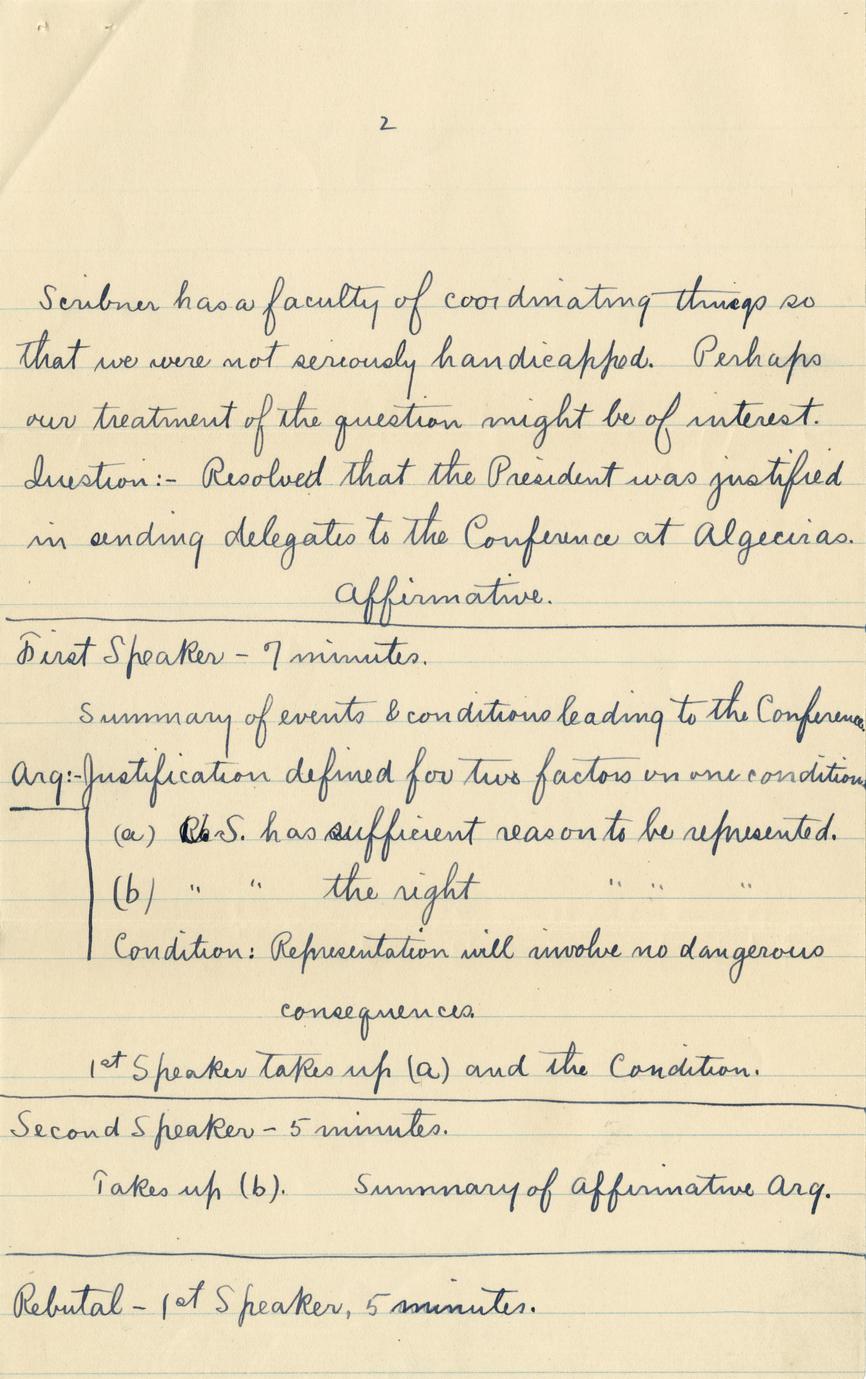 2
Scribner has a faculty of coordinating things so
that we were not seriously handicapped. Perhaps
our treatment of the question might be of interest.
Question:- Resolved that the President was justified
in sending delegates to the Conference at Algeciras.
Affirmative.
First Speaker - 7 minutes.
Summary of events & conditions leading to the Conference.
Arg:- Justification defined for two factors on one condition
(a) U.S. has sufficient reason to be represented.
(b) " " the right " " "
Condition: Representation will involve no dangerous
consequences.
1st Speaker takes up (a) and the Condition.
Second Speaker - 5 minutes.
Takes up (b). Summary of Affirmative Arg.
Rebutal - 1st Speaker, 5 minutes.